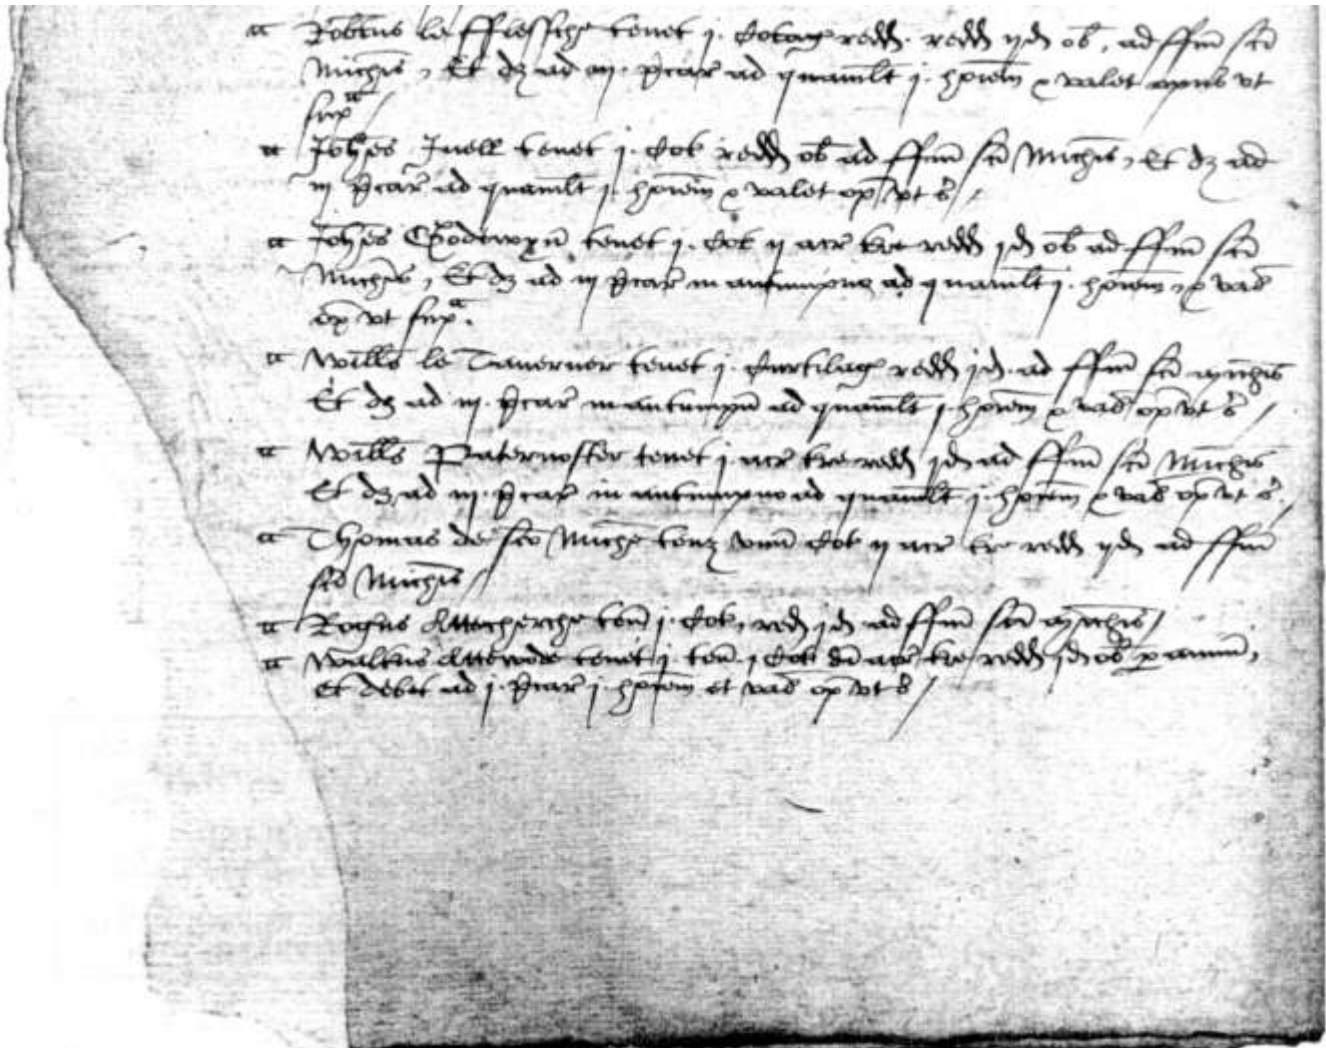 a Robtus le fflessche tenet j. Cotag redd. redd ijd ob. ad ffm sci
Michis, Et dz ad iij. pcar ad quamlt j. hoiem & valet opus vt
supa /
a Johes Juell tenet j. Cot redd ob ad ffm sci Michis, Et dz ad
iij pcar ad quamlt j. hoiem & valet op vt s /
a Johes Godewyn tenet j. Cot ij acr tre redd jd ob ad ffm sci
Michis, Et dz ad iij pcar in autumpno ad quamlt j. hoiem, & val
op vt supa.
a Wills le Tauerner tenet j. Curtilag redd jd. ad ffm sci Michis
Et dz ad iij. pcar in autumpn ad quamlt j. hoiem & val op vt s /
a Wills Paternoster tenet j. acr tre redd jd ad ffm sci Michis
Et dz ad iij. pcar in autumpno ad quamlt j. hoiem & val op vt s.
a Thomas de sco Miche tenz vnu Cot ij acr tre redd ijd ad ffm
sci Michis /
a Rogus Attecherche ten j. Cot, redd jd ad ffm sci Michis /
a Waltus Attewode tenet j. ten. j Cot di acr tre redd jd ob p annum,
Et debet ad j. pcar j. hoiem et val op vt s /